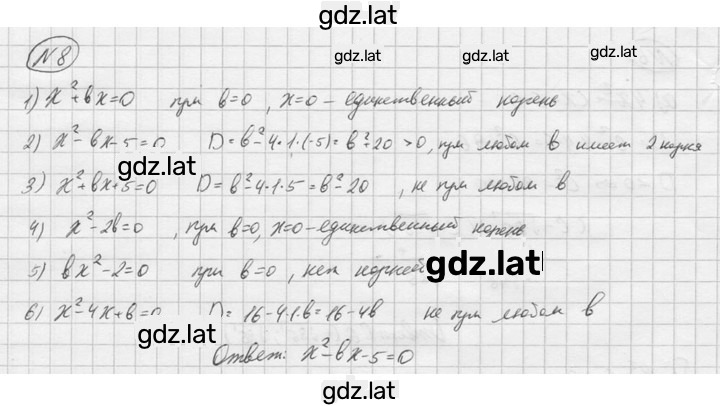 gdz.lat
N 8
gdz.lat gdz.lat
1) x²+вx=0 при в=0, x=0 – единственный корень
2) x²-вx-5=0 D=в²-4·1·(-5)=в²+20>0, при любом в имеет 2 корня
gdz.lat
3) x²+вx+5=0 D=в²-4·1·5=в²-20, не при любом в
4) x²-2в=0, при в=0, x=0 – единственный корень
5) вx²-2=0 при в=0, нет корней
gdz.lat
6) x²-4x+в=0 D=16-4·1·в=16-4в не при любом в
gdz.lat gdz.lat
Ответ: x²-вx-5=0
gdz.lat